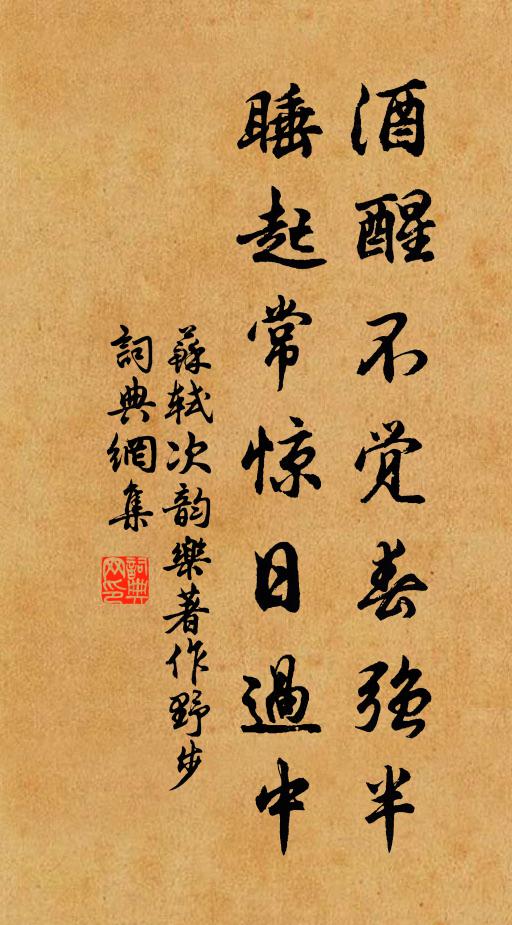 酒醒不觉春强半
睡起常惊日過中
蘇轼次韵樂著作野步
詞典網集
詞典网印